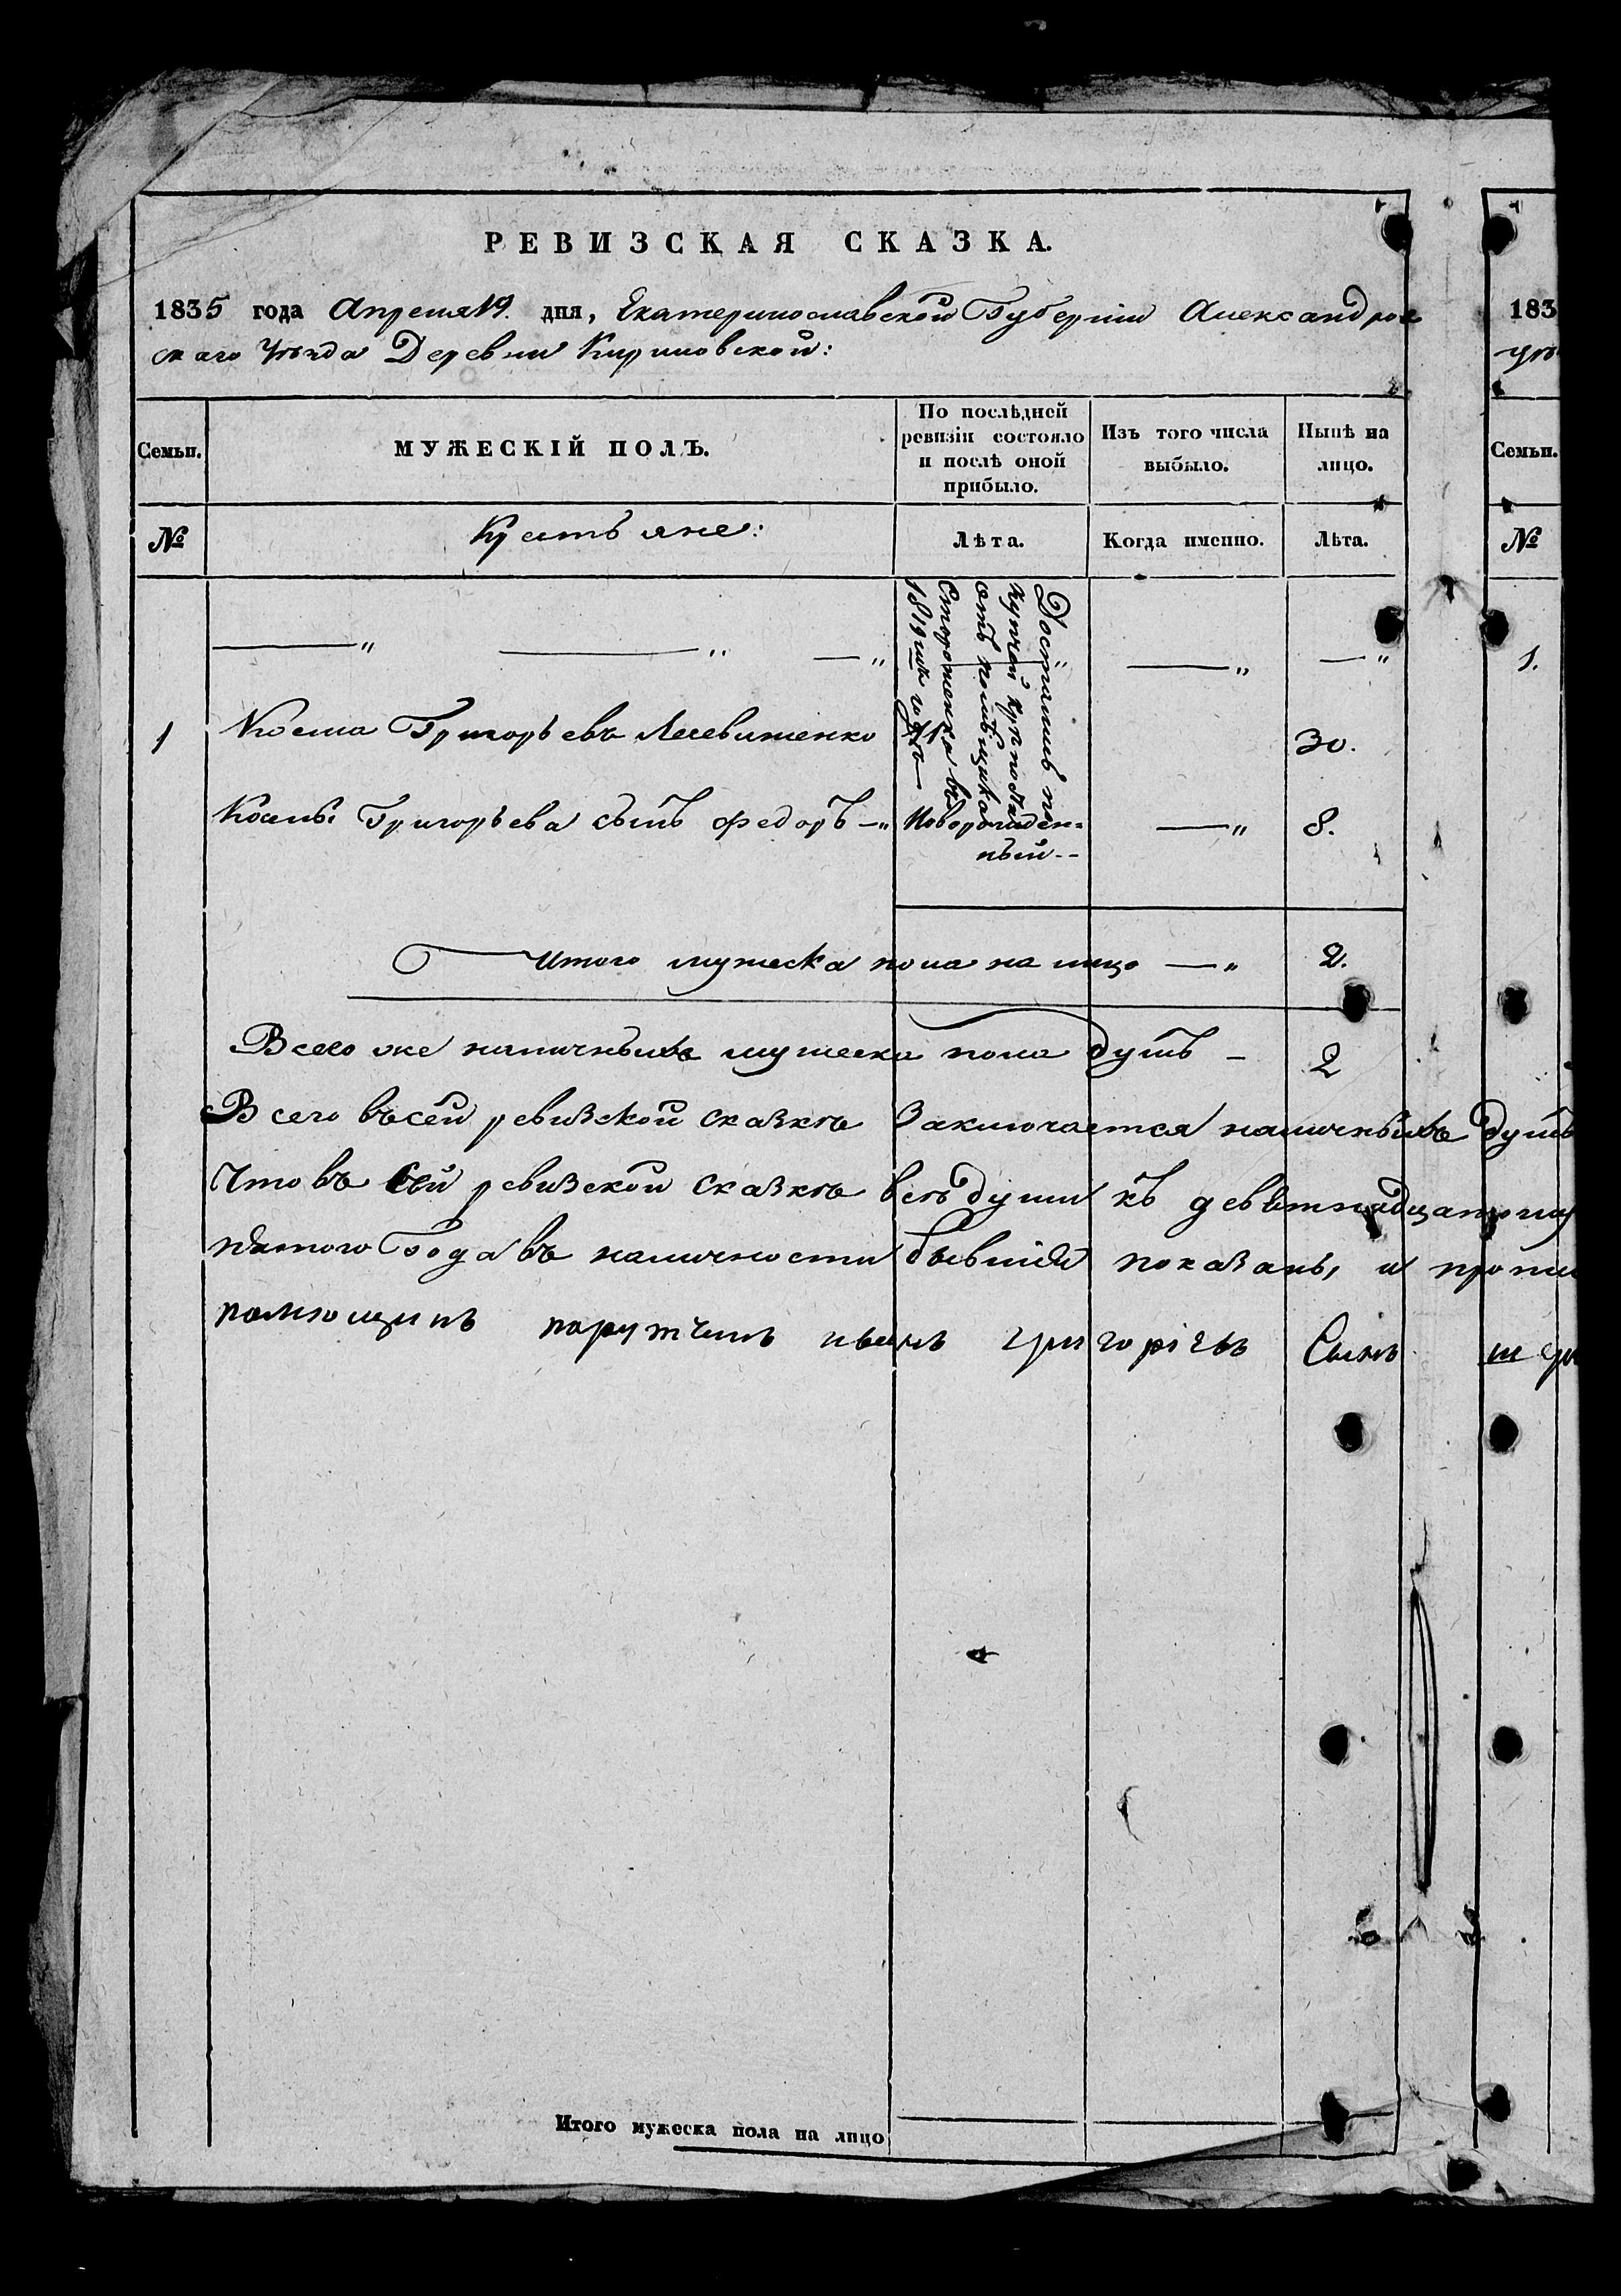 РЕВИЗСКАЯ СКАЗКА.
1835 года Апреля 19. дня, Екатеринославской Губернии Александров
скаго Уѣзда Деревни Кириловской:
183
Семьи.
МУЖЕСКІЙ ПОЛЪ.
По послѣдней
ревизіи состояло
и послѣ оной
прибыло.
Изъ того числа
выбыло.
Нынѣ на
лицо.
Семьи.
№
Крестьяне:
Лѣта.
Когда именно.
Лѣта.
№
Достались по
купчей
отъ помѣщика
Стороженка въ
1819мъ годѣ
1.
1 Косма Григорьевъ 30.
Космы Григорьева сынъ Федоръ Новорожден=
ный 8.
Итого мужеска пола на лицо 2.
Всего же наличныхъ мужеска пола душъ 2
Всего въ сей ревизской сказкѣ Заключается наличныхъ душъ
Что въ сей ревизской сказкѣ всѣ души къ девѣтнадцатому
пятого Года въ наличности бывшія показаны, и
помющикъ поруткикъ иванъ григорієвъ Сынъ
Итого мужеска пола на лицо